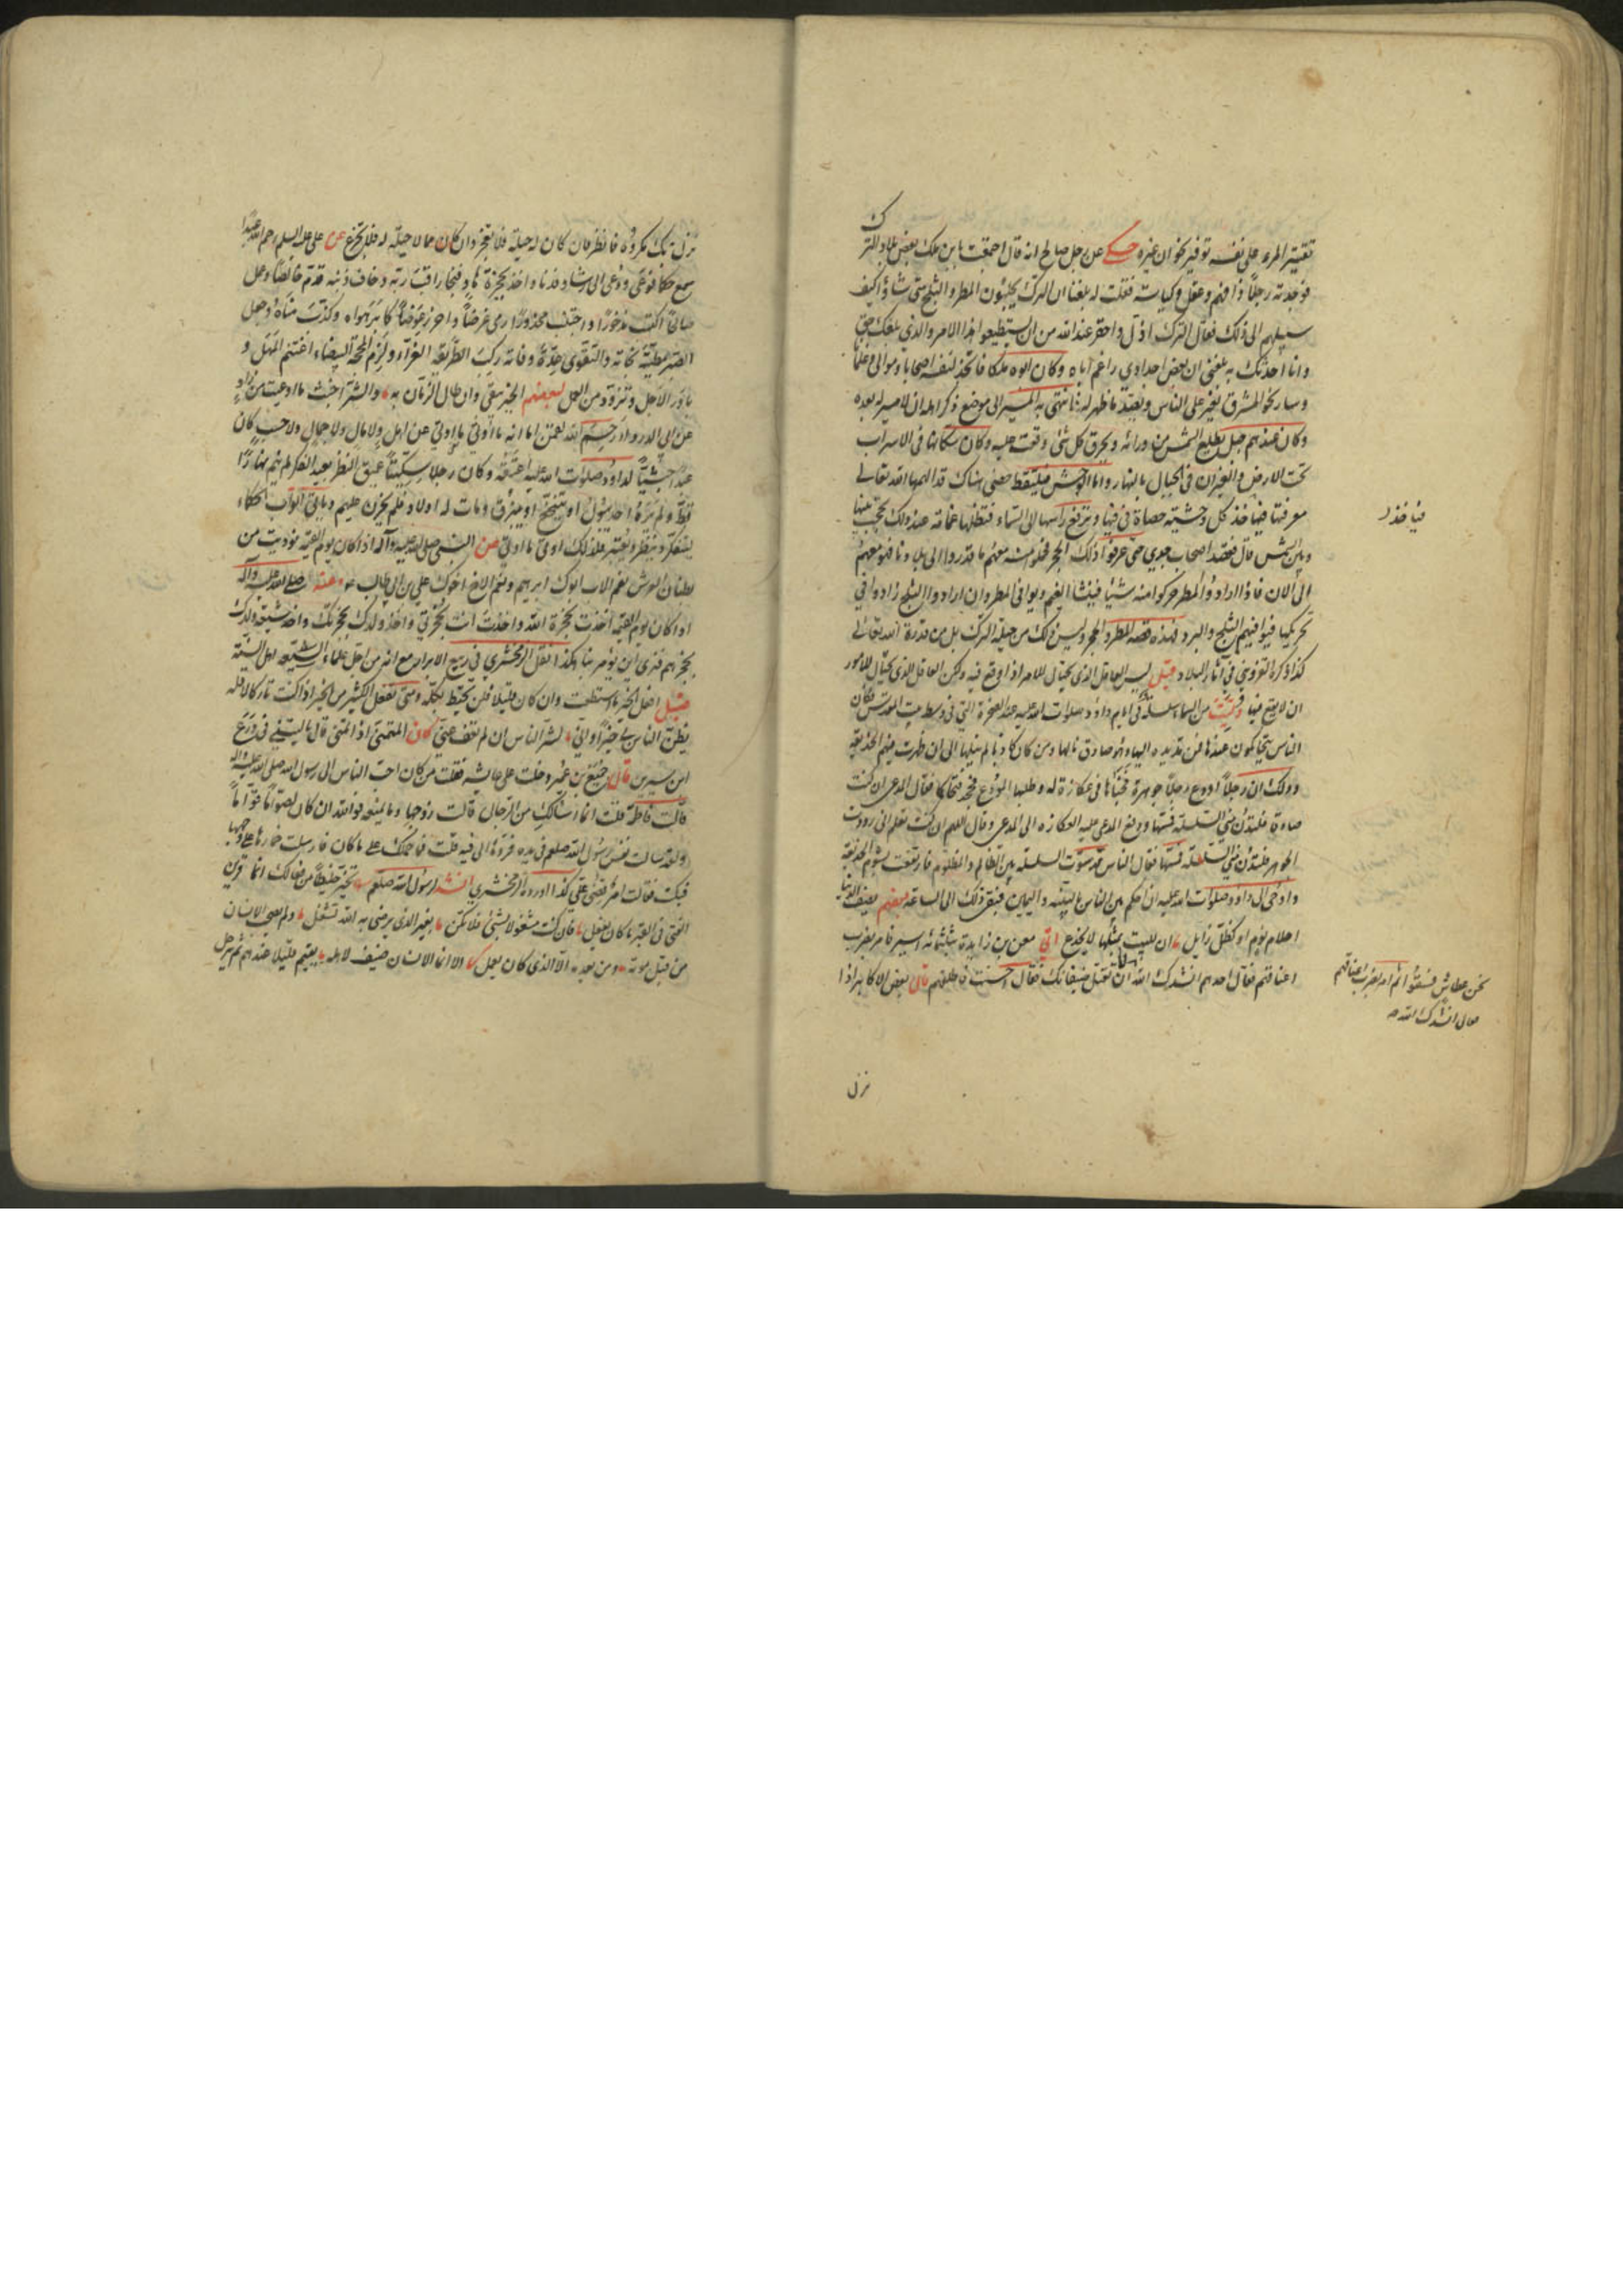 تقتير المرء على نفسه توفير لخزان غيره حكي عن رجل صالح انه قال اجتمعت بابن ملك بعض بلاد الترك
فوجدته رجلاً ذا فهم وعقل وكياسة فقلت له بلغنا ان الترك يجلبون المطر والثلج متى شاؤا كيف
سبيلهم الى ذلك فقال الترك اذل واحقر عند الله من ان يستطيعوا هذا الامر والذي بلغك حق
وانا احدثك به بلغني ان بعض اجدادي راغم اباه وكان ابوه ملكا فاتخذ لنفسه اصحابا وموالي وغلمانا
وسار نحو المشرق يغير على الناس ويصيد ما ظهر له فانتهى به المسير الى موضع ذكر اهله ان لا مسير له بعده
وكان عندهم جبل تطلع الشمس من ورائه وتحرق كل شئ وقعت عليه وكان سكانها في الاسراب
تحت الارض والغيران في الجبال بالنهار واما الوحش فيلتقط حصى هناك قد الهمها الله تعالى
معرفتها فياخذ كل وحشية حصاة في فيها وترفع راسها الى السماء فتظلها غمامة عند ذلك تحجب بينها
وبين الشمس قال فقصد اصحاب جدي حتى عرفوا ذلك الحجر فحملوا منه معهم ما قدروا الى بلادنا فهو معهم
الى الان فاذا ارادوا المطر حركوا منه شيئا فينشا الغيم ويوافي المطر وان ارادوا الثلج زادوا في
تحريكها فيوافيهم الثلج والبرد فهذه قصة المطر والحجر وليس ذلك من حيلة الترك بل من قدرة الله تعالى
كذا ذكره القزويني في آثار البلاد قيل ليس العاقل الذي يحتال للامر اذا وقع فيه ولكن العاقل الذي يحتال للامور
ان لا يقع فيها من السماء سلسلة في ايام داود صلوات الله عليه عند الصخرة التي في وسط بيت المقدس فكان
الناس يتحاكمون عندها فمن مد يده اليها وهو صادق نالها ومن كان كاذبا لم ينلها الى ان ظهرت فيهم الخديعة
وذلك ان رجلاً اودع رجلاً جوهرة فخبأها في عكازة له وطلبها المودع فجحد فتحاكما فقال المدعي ان كنت
صادقا فلتدن مني السلسلة فمسها ودفع المدعى عليه العكازة الى المدعي وقال اللهم ان كنت تعلم اني رددت
الجوهر فلتدن مني السلسلة فمسها فقال الناس قد سوت السلسلة بين الظالم والمظلوم فارتفعت بشؤم الخديعة
واوحى الى داود صلوات الله عليه ان احكم بين الناس بالبينة واليمين فبقي ذلك الى الساعة بعضهم يصف الدنيا
احلام نوم او كظل زايل ان اللبيب بمثلها لا يخدع اتي معن بن زايدة بثلثمائة اسير فامر بضرب
اعناقهم فقال احدهم انشدك الله ان تقتل ضيفانك فقال احسنت فاطلقهم قال بعض الاكابر اذا
فياخذ
نحن عطاش فسقوا ثم امر بضرب اعناقهم
فقال انشدك الله
نزل
نزل بك مكروه فانظر فان كان له حيلة فلا تعجز وان كان مما لا حيلة له فلا تجزع عن علي عليه السلم رحم الله عبدا
سمع حكما فوعى ودعي الى رشاد فدنا واخذ بحجزة هاد فنجا راقب ربه وخاف ذنبه قدم خالصا وعمل
صالحاً اكتسب مذخورا واجتنب محذورا رمى غرضاً واحرز عوضاً كابر هواه وكذب مناه وجعل
الصبر مطية نجاته والتقوى عدة وفاته ركب الطريقة الغراء ولزم المحجة البيضاء اغتنم المهل و
بادر الاجل وتزود من العمل لبعضهم الخير يبقى وان طال الزمان به والشر اخبث ما اوعيت من زاد
عن ابي الدرداء رحم الله لقمن اما انه ما اوتي ما اوتي عن اهل ولا مال ولا جمال ولا حسب كان
عبداً حبشياً لداود صلوات الله عليه اعتقه وكان رجلا سكيتاً عميق النظر بعيد الفكر لم ينم نهارا
قط ولم يره احد يبول او يتنخع او يبزق ومات له اولاد فلم يحزن عليهم وياتي ابواب الحكماء
يتفكر وينظر ويعتبر فلذلك اوتي ما اوتي عن النبي صلى الله عليه وآله اذا كان يوم القيمة نوديت من
بطنان العرش نعم الاب ابوك ابرهيم ونعم الاخ اخوك علي بن ابي طالب عنه صلى الله عليه وآله
اذا كان يوم القيمة اخذت بحجزة الله واخذت انت بحجزتي واخذ ولدك بحجزتك واخذ شيعة ولدك
بحجزهم فترى اين يؤمر بنا هكذا نقل الزمخشري في ربيع الابرار مع انه من اجل علماء
قيل افعل الخير ما استطعت وان كان قليلا فلن تحيط بكله ومتى تفعل الكثير من الخير اذا كنت تاركا لاقله
يظن الناس بي خيراً واني لشر الناس ان لم تعف عني كان المتمني اذا تمنى قال ليتني في ورع
ابن سيرين قال جميع بن عمير دخلت على عايشة فقلت من كان احب الناس الى رسول الله صلى الله عليه وآله
قالت فاطمة قلت انما اسالك من الرجال قالت زوجها وما يمنعه فوالله ان كان لصواماً قواماً
ولقد سالت نفس رسول الله صلعم في يده فردها الى فيه قلت فما حملك على ما كان فارسلت خمارها على وجهها
فبكت فقالت امر قضي علي كذا اورده الزمخشري انشد رسول الله صلعم تخير خليطاً من فعالك انما قرين
الفتى في القبر ما كان يفعل فان كنت مشغولا بشئ فلا تكن بغير الذي يرضى به الله تشغل ولم يصحب الانسان
من قبل موته ومن بعده الا الذي كان يعمل الا انما الانسان ضيف لاهله يقيم قليلا عندهم ثم يرحل